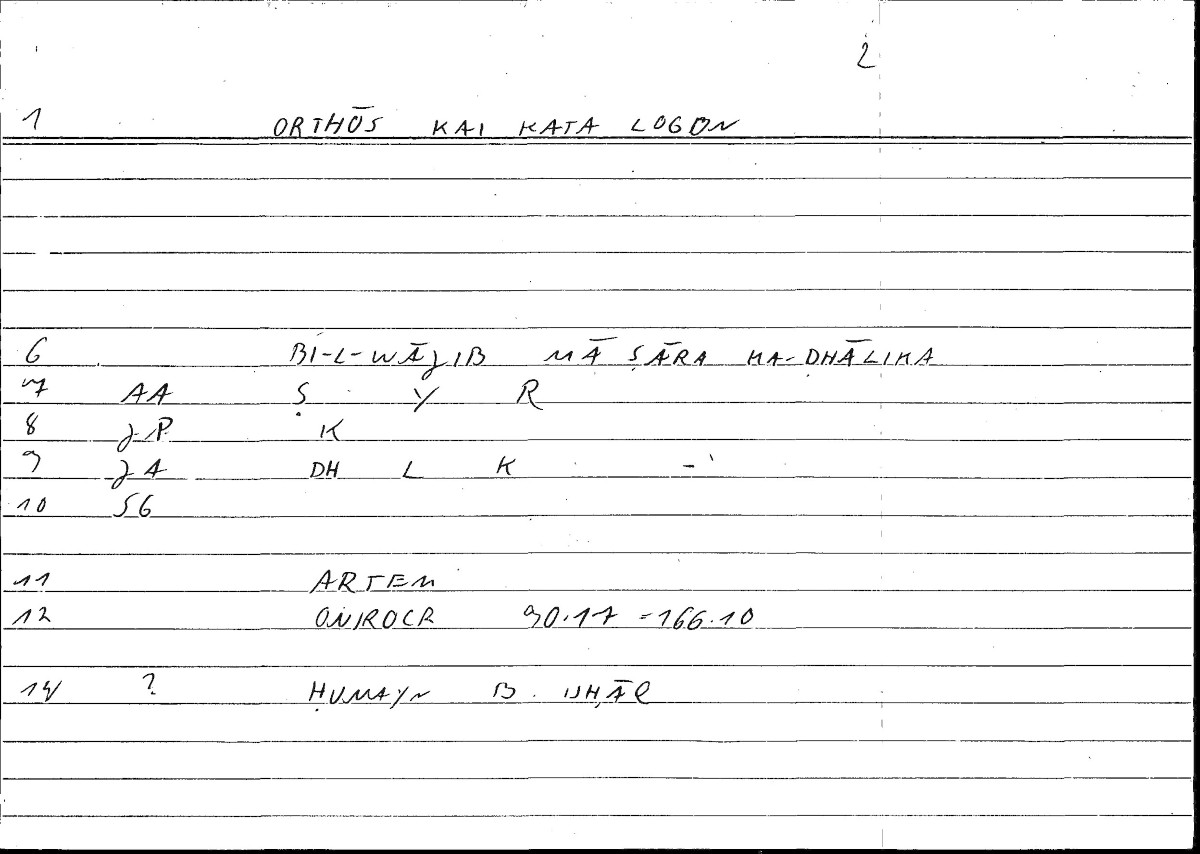 2
1 ORTHŌS KAI KATA LOGON
6 BI-L-WĀJIB MĀ ṢĀRA KA-DHĀLIKA
7 AA Ṣ Y R
8 JP K
9 JA DH L K -
10 SG
11 ARTEM
12 ONIROCR 90.17 = 166.10
14 ? ḤUNAYN B. ISḤĀQ